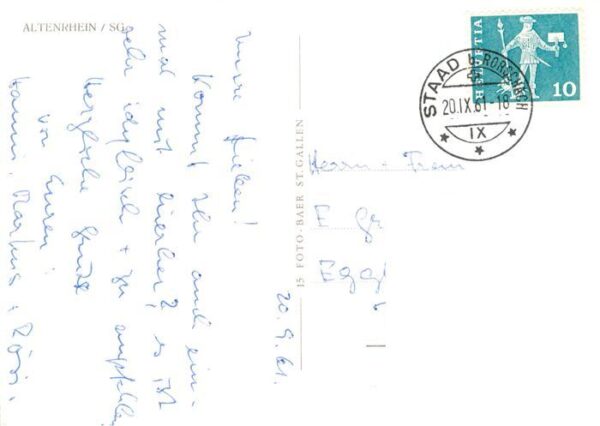 ALTENRHEIN / SG
20. 9. 61.
meine Lieben!
Kommt Ihr auch ein-
mal mit hierher? es ist
sehr idyllisch + zu empfehlen
Herzliche Grüsse
von Euren
Hanni, Markus + Rösi.
15 FOTO-BAER ST. GALLEN
HELVETIA
10
STAAD b. RORSCHACH
20.IX.61-18
IX
Herrn + Frau
E. Gr
Eggi